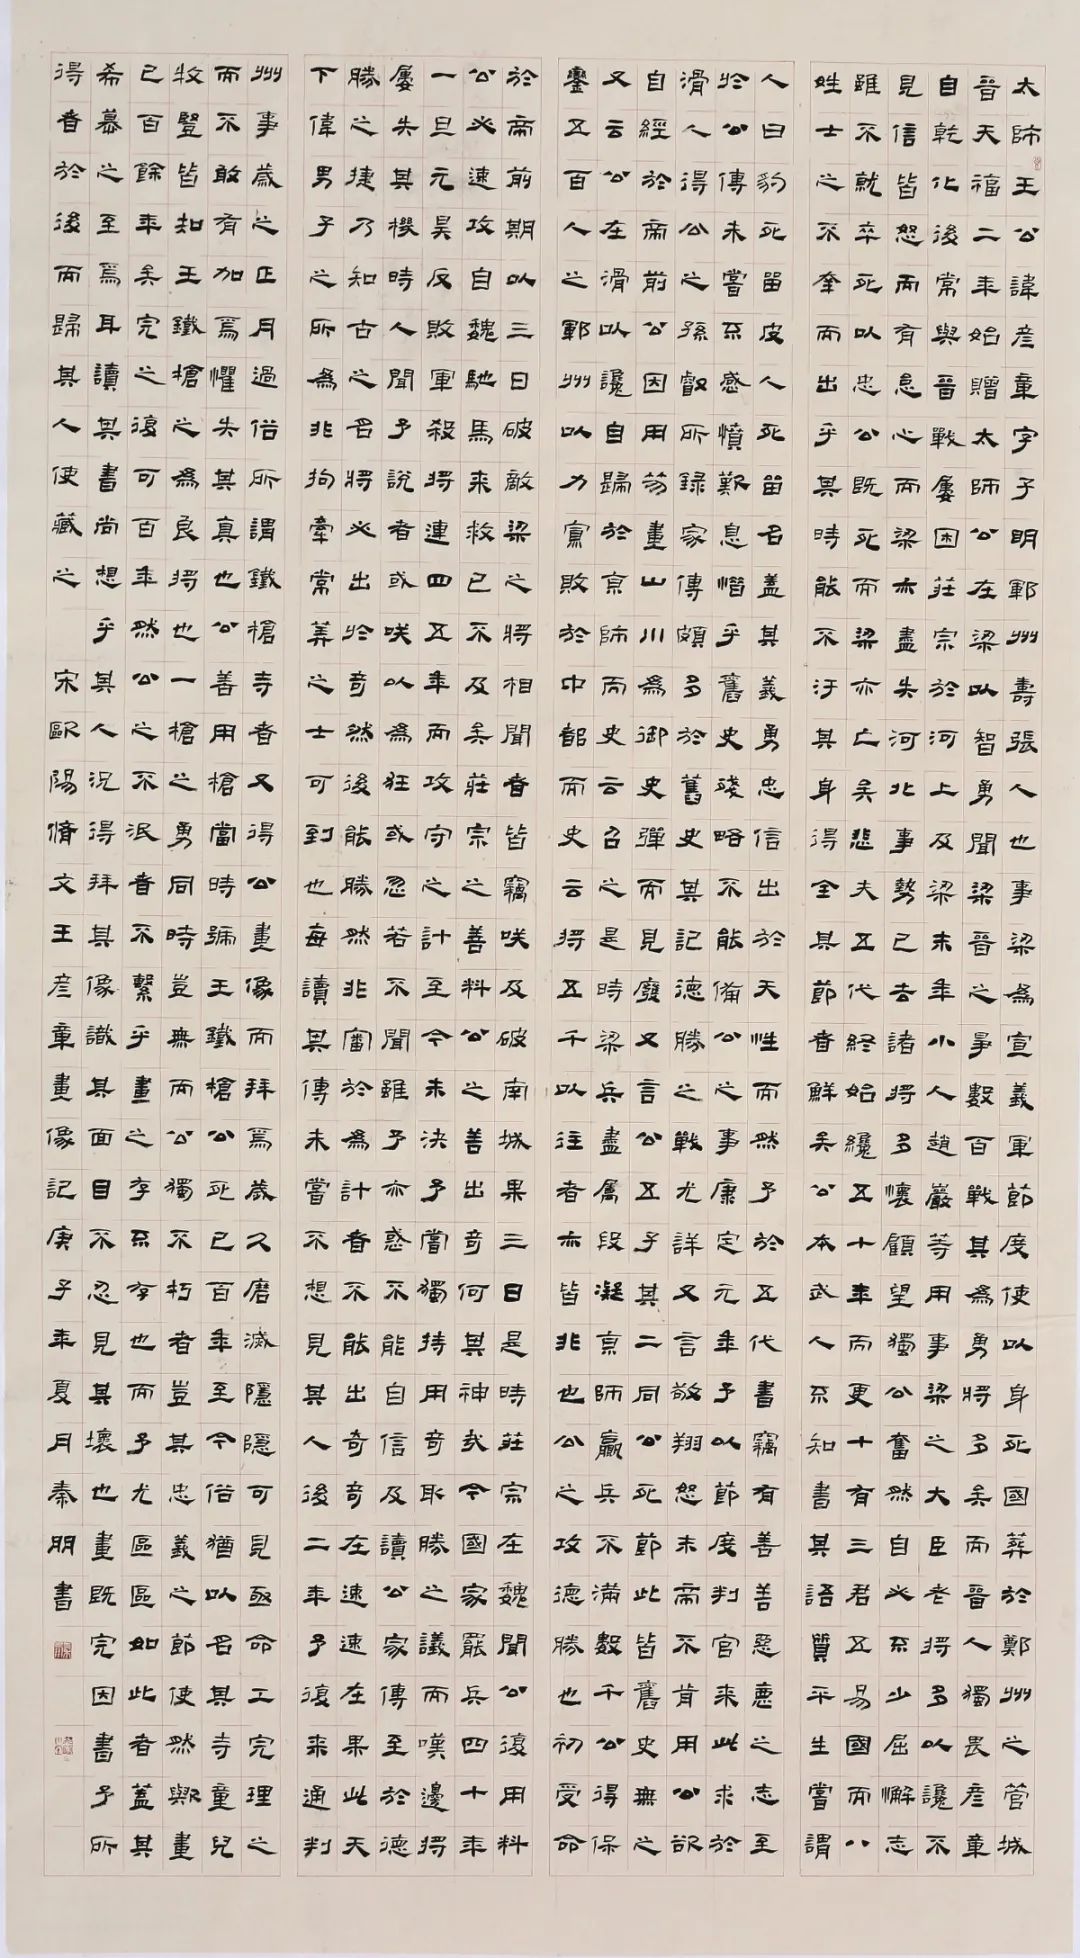 太師王公諱彦章字子明鄆州壽張人也事梁為宣義軍節度使以身死國葬於鄭州之管城
晉天福二年始贈太師公在梁以智勇聞梁晉之爭數百戰其為勇將多矣而晉人獨畏彦章
自乾化後常與晉戰屢困莊宗於河上及梁末年小人趙巖等用事梁之大臣老將多以讒不
見信皆怒而有怠心而梁亦盡失河北事勢已去諸將多懷顧望獨公奮然自必不少屈懈志
雖不就卒死以忠公既死而梁亦亡矣悲夫五代終始纔五十年而更十有三君五易國而八
姓士之不幸而出乎其時能不汙其身得全其節者鮮矣公本武人不知書其語質平生嘗謂
人曰豹死留皮人死留名蓋其義勇忠信出於天性而然予於五代書竊有善善惡惡之志至
於公傳未嘗不感憤歎息惜乎舊史殘略不能備公之事康定元年予以節度判官來此求於
滑人得公之孫睿所錄家傳頗多於舊史其記德勝之戰尤詳又言敬翔怒末帝不肯用公欲
自經於帝前公因用笏畫山川為御史彈而見廢又言公五子其二同公死節此皆舊史無之
又云公在滑以讒自歸於京師而史云召之是時梁兵盡屬段凝京師羸兵不滿數千公得保
鑾五百人之鄆州以力寡敗於中都而史云將五千以往者亦皆非也公之攻德勝也初受命
於帝前期以三日破敵梁之將相聞者皆竊咲及破南城果三日是時莊宗在魏聞公復用料
公必速攻自魏馳馬來救已不及矣莊宗之善料公之善出奇何其神哉今國家罷兵四十年
一旦元昊反敗軍殺將連四五年而攻守之計至今未決予嘗獨持用奇取勝之議而嘆邊將
屢失其機時人聞予說者或咲以為狂或忽若不聞雖予亦惑不能自信及讀公家傳至於德
勝之捷乃知古之名將必出於奇然後能勝然非審於為計者不能出奇奇在速速在果此天
下偉男子之所為非拘牽常算之士可到也每讀其傳未嘗不想見其人後二年予復來通判
州事歲之正月過俗所謂鐵槍寺者又得公畫像而拜焉歲久磨滅隱隱可見亟命工完理之
而不敢有加焉懼失其真也公善用槍當時號王鐵槍公死已百年至今俗猶以名其寺童兒
牧豎皆知王鐵槍之為良將也一槍之勇同時豈無而公獨不朽者豈其忠義之節使然歟畫
已百餘年矣完之復可百年然公之不泯者不繫乎畫之存不存也而予尤區區如此者蓋其
希慕之至焉耳讀其書尚想乎其人況得拜其像識其面目不忍見其壞也畫既完因書予所
得者於後而歸其人使藏之 宋歐陽脩文王彦章畫像記庚子年夏月秦朋書